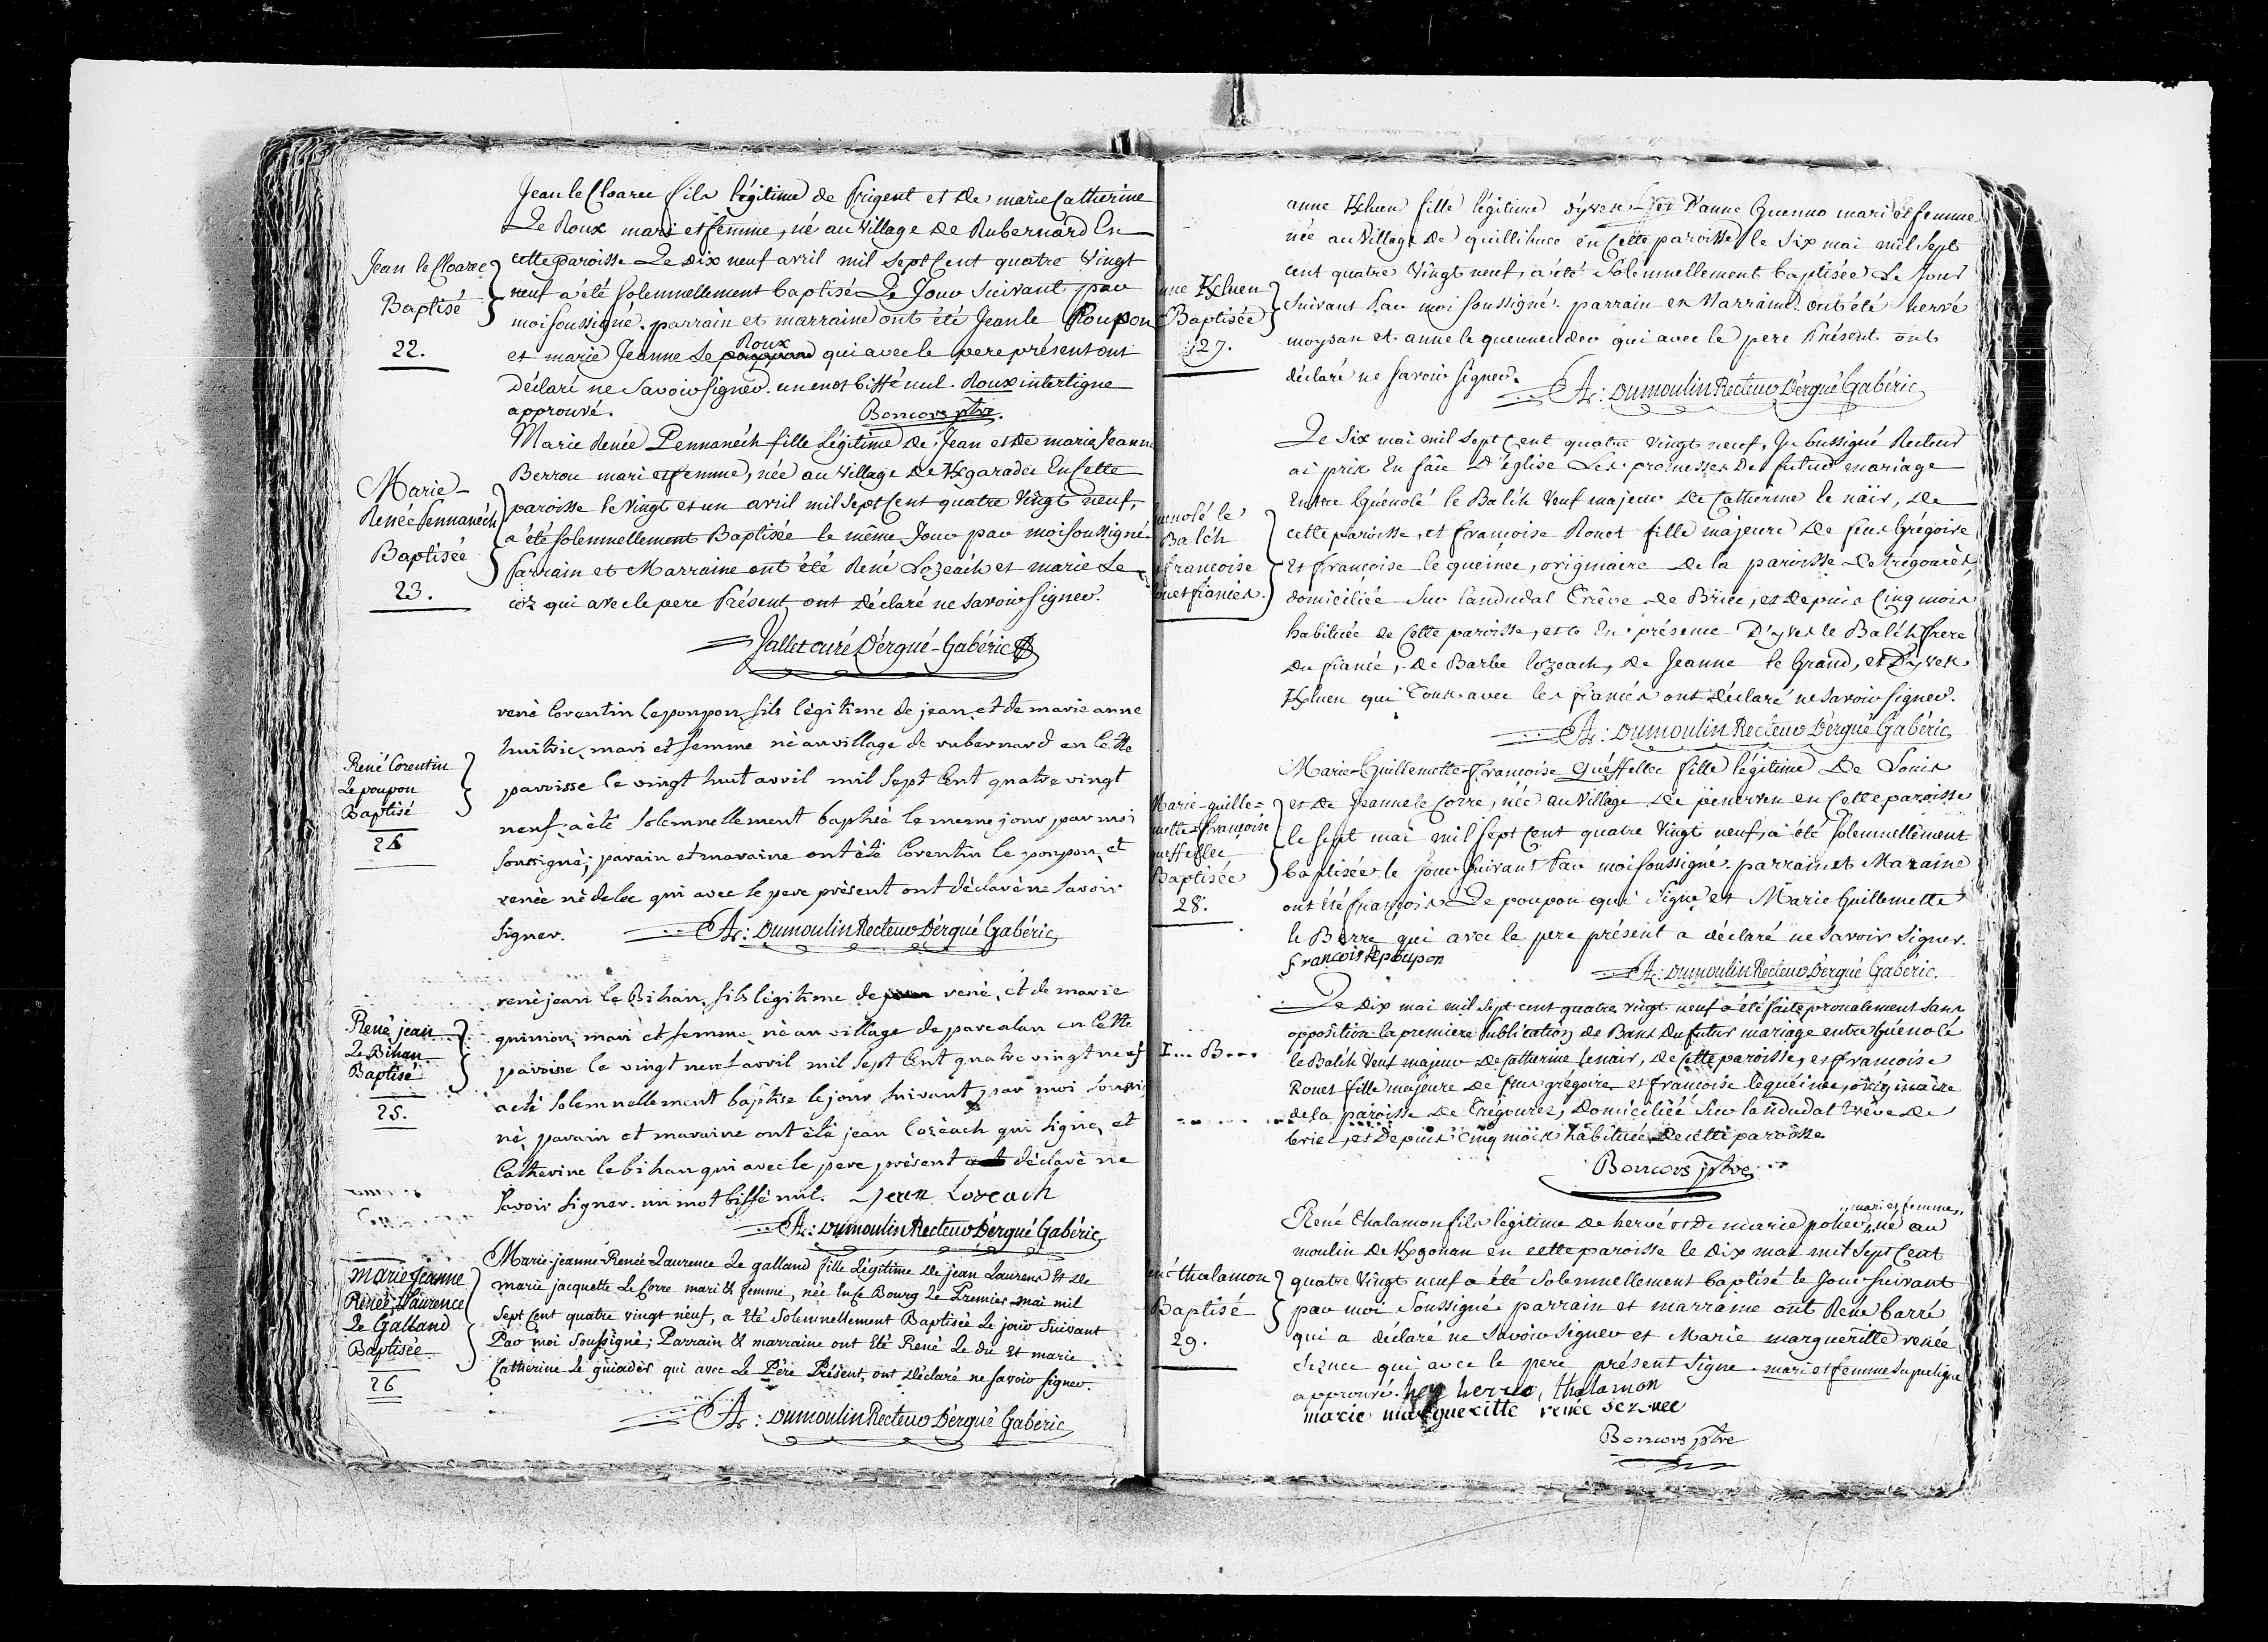 Jean le Cloarec
Baptisé
22.
Jean le Cloarec fils légitime de Prigent et de marie Catherine
Le Roux mari et femme, né au village de Rubernard En
cette paroisse Le dix neuf avril mil Sept Cent quatre vingt
neuf a été solemnellement baptisé Le Jour suivant par
moi soussigné. parrain et marraine ont été Jean le Poupon
et marie Jeanne Le Roux qui avec le pere présent ont
Déclaré ne Savoir signer. un mot biffé nul. Roux interligne
approuvé. Boncors ptre.
Marie
Renée Pennanéch
Baptisée
23.
Marie Renée Pennanéch fille Légitime de Jean et de marie Jeanne
Berrou mari et femme, née au village de Kgaradec En Cette
paroisse le vingt et un avril mil Sept Cent quatre vingt neuf,
a été solemnellement Baptisée le même Jour par moi soussigné
Parrain et Marraine ont été René Lozeach et marie Le
coz qui avec le pere Présent ont déclaré ne savoir signer.
Jallet curé D'ergué-Gabéric
René Corentin
Le poupon
Baptisé
24
renè Corentin le poupon fils légitime de jean et de marie anne
huitric, mari et femme nè au village de rubernard en Cette
paroisse le vingt huit avril mil Sept Cent quatre vingt
neuf, a été Solemnellement baptisé le meme jour par moi
Soussignè; parain et maraine ont étè Corentin le poupon, et
renèe nèdelec qui avec le pere prèsent ont dèclarè ne Savoir
Signer. A: Dumoulin Recteur D'ergué Gabéric
René jean
Le Bihan
Baptisé
25.
renè jean le Bihan, fils légitime de renè, et de marie
quinion, mari et femme, nè au village de parcalan en Cette
paroisse le vingt neuf avril mil Sept Cent quatre vingt neuf
a eté Solemnellement baptise le jour Suivant par moi Soussi
nè, parain et maraine ont étè jean Lozèach qui signe, et
Catherine le bihan qui avec le pere prèsent a dèclarè ne
Savoir Signer. un mot biffè nul. Jean Lozeach
A: Dumoulin Recteur D'ergué Gabéric
Marie Jeanne
Renée, Laurence
Le Galland
Baptisée
26
Marie-jeanne-Renée-Laurence Le galland fille Légitime de jean Laurens Et de
marie jacquette Le Corre mari & femme, née En Ce Bourg Le Premier mai mil
Sept Cent quatre vingt neuf, a Eté Solemnellement Baptisée Le jour Suivant
Par moi Soussigné; Parrain & marraine ont Eté René Le du Et marie
Catherine Le guiader qui avec Le Pére Présent, ont déclaré ne savoir signer.
A: Dumoulin Recteur D'ergué Gabéric
nne Kluen
Baptisée
27.
anne Kluen fille légitime d'yves et D'anne Guenno mari et femme
née au village De quillihuec en Cette paroisse le Six mai mil Sept
cent quatre vingt neuf, a été Solemnellement baptisée Le Jour
Suivant Par moi soussigné. parrain et Marraine ont été hervé
moysan et anne le quemendeur qui avec le pere Présent ont
déclaré ne savoir signer.
A: Dumoulin Recteur D'ergué Gabéric
uénolé le
Baléh
francoise
ouet fiancés.
Le Six mai mil Sept Cent quatre vingt neuf, Je sussigné Recteur
ai pris En face D'église Les promesses De futur mariage
Entre Guénolé le Baléh Veuf majeur De Catherine le näir, de
cette paroisse, et francoise Rouet fille majeure De feus Grégoire
Et francoise le queinec, originaire de la paroisse de trégourès,
domiciliée Sur Landudal Trêve de Briec, et depuis Cinq mois
habituée de Cette paroisse, et ce En présence D'yves le Baléh frere
Du fiancé, de Barbe lozeach, de Jeanne le Grand, et D'yves
Kluen qui Tous avec les fiancés ont déclaré ne savoir signer.
A: Dumoulin Recteur D'ergué Gabéric
Marie-guille=
mette-françoise
ueffellec
Baptisée
28.
Marie-Guillemette-françoise Quéffellec fille légitime De Louis
et de Jeanne le Corre, née au village de penerven en Cette paroisse
le sept mai mil sept cent quatre vingt neuf, a été Solemnellement
baptisée le jour suivant Par moi soussigné. parrain et Maraine
ont été françois Le poupon qui signe et Marie Guillemette
le Berre qui avec le pere présent a déclaré ne savoir signer.
francois le poupon
A: Dumoulin Recteur D'ergué Gabéric.
I... B...
Le Dix mai mil Sept cent quatre vingt neuf a été faite pronalement Sans
opposition la premiere Publication de Bans Du futur mariage entre Guénolé
le Baléh Veuf majeur De Catherine lenair, de Cette paroisse, et francoise
Rouet fille majeure de feus grégoire et francoise le quéinec, originaire
de la paroisse De Trégourez, Domiciliée Sur landudal trêve De
briec, et Depuis cinq mois habituée De cette paroisse
Boncors ptre
ené thalamon
Baptisé
29.
mari et femme,
René thalamon fils légitime De hervé et de marie poher, né au
moulin de Kgonan en cette paroisse le Dix mai mil Sept Cent
quatre vingt neuf a été Solemnellement baptisé le Jour suivant
par moi Soussigné parrain et marraine ont René barré
qui a déclaré ne savoir signer et Marie margueritte renée
Seznec qui avec le pere présent signe. mari et femme Surpaligne
approuvé. herve, thalamon
marie margueritte renée Seznec
Boncors ptre